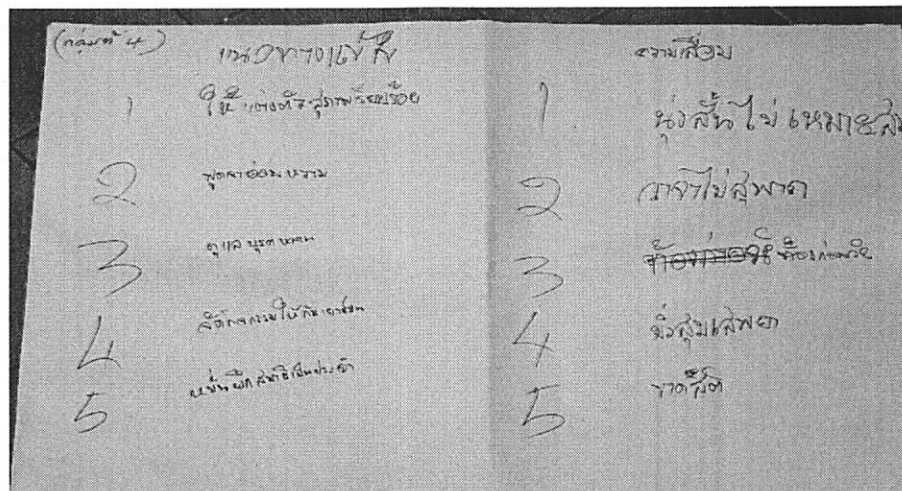 (กลุ่มที่ 4)
แนวทางแก้ไข
1 ให้แต่งตัวสุภาพเรียบร้อย
2 พูดจาอ่อนหวาน
3 ดูแลบุตรหลาน
4 จัดกิจกรรมให้กับเยาวชน
5 หมั่นฝึกสมาธิเป็นประจำ
ความเสื่อม
1. นุ่งสั้นไม่เหมาะสม
2 วาจาไม่สุพาด
3 ท้องก่อนวัย
4 มั่วสุมเสพยา
5 ขาดสติ